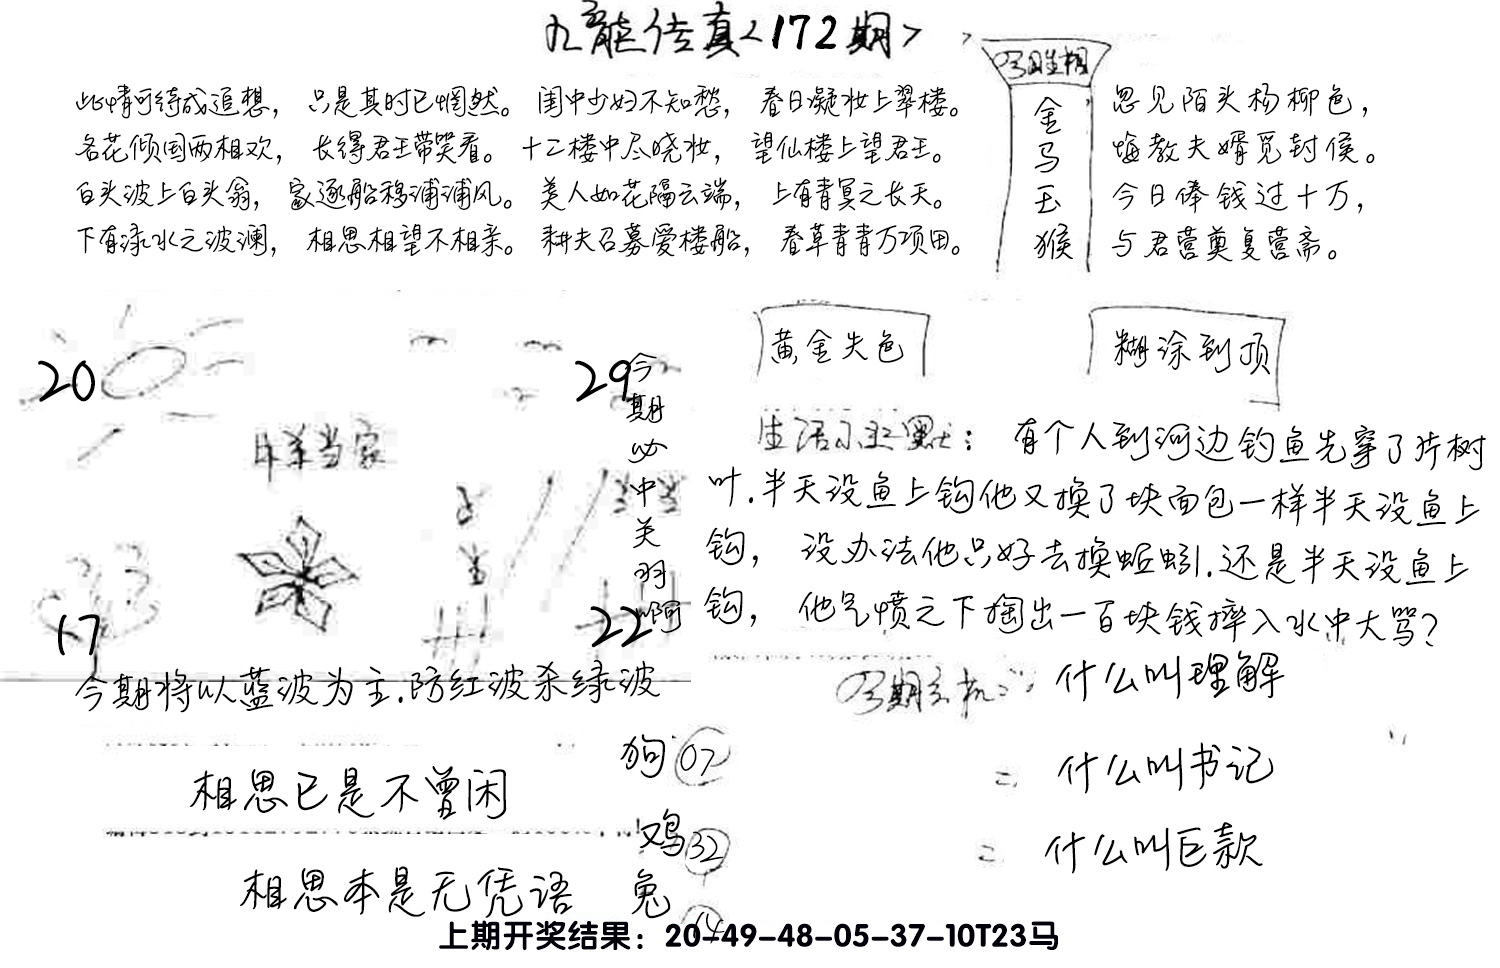 九龍传真<172期>
此情可待成追想，只是其时已惘然。闺中少妇不知愁，春日凝妆上翠楼。
名花倾国两相欢，长得君王带笑看。十二楼中尽晓妆，望仙楼上望君王。
白头波上白头翁，家逐船移浦浦风。美人如花隔云端，上有青冥之长天。
下有渌水之波澜，相思相望不相亲。耕夫召募爱楼船，春草青青万项田。
金
马
玉
猴
忽见陌头杨柳色，
悔教夫婿觅封侯。
今日俸钱过十万，
与君营奠复营斋。
20
29
17
22
今期必中关羽啊
今期将以蓝波为主.防红波杀绿波
黄金失色
糊涂到顶
生活幽默：有个人到河边钓鱼先穿了片树
叶.半天没鱼上钩他又换了块面包一样半天没鱼上
钩，没办法他只好去换蚯蚓.还是半天没鱼上
钩，他气愤之下掏出一百块钱摔入水中大骂？
什么叫理解
= 什么叫书记
= 什么叫巨款
相思已是不曾闲
相思本是无凭语
狗 07
鸡 32
兔
上期开奖结果：20-49-48-05-37-10T23马